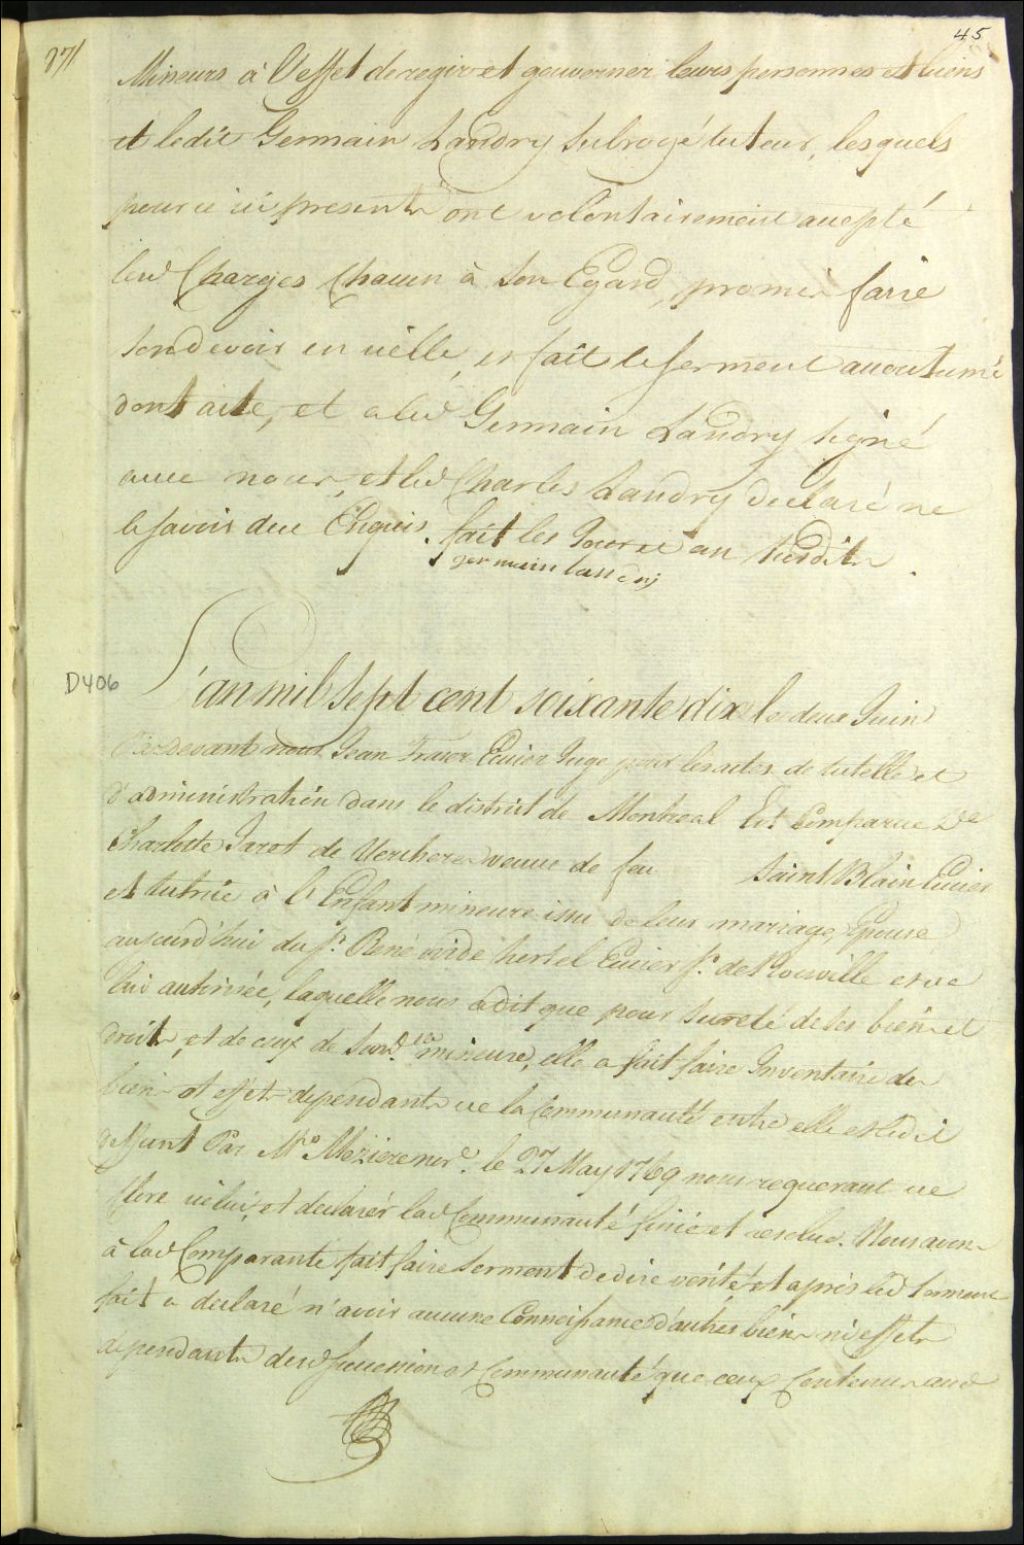 45
271
Mineurs à l'effet de regir et gouverner leurs personnes et biens
et ledit Germain Landry Subrogé tuteur, lesquels
pour ce ici presents ont volontairement accepté
lesd Charges Chacun à Son Egard, promis faire
Son devoir en icelle, et fait le serment accoutumé
dont acte, et a led Germain Landry Signé
avec nous, et led Charles Landry declaré ne
le Savoir de ce Enquis. fait les Jour et an Susdits.
germain landrij
D406
L'an mil Sept cent soixante dix le deux Juin
Pardevant nous Jean Ecuier Juge pour les actes de tutelle et
d'administration dans le district de Montreal Est Comparue De
Charlotte Jarot de Vercheres veuve de feu Saint Blain Ecuier
et tutrice à l'Enfant mineure issu de leur mariage, Epouse
aujourd'hui du Sr. René ovide hertel Ecuier Sr. de Rouville et de
lui autorisée, laquelle nous a dit que pour Sureté de Ses biens et
droits, et de ceux de Sad. mineure, elle a fait faire Inventaire des
biens et effets dependants de la Communauté entre elle et led
deffunt Par Me. Mézierenore. le 27 May 1769 nous requerant de
clore icelui, et declarer lad Communauté finie et resolue. Nous avons
à lad Comparante fait faire Serment de dire verité et après led Serment
fait a declaré n'avoir aucune Connoissance d'autres biens ni effets
dependants desd Succession et Communauté que ceux Contenus aud